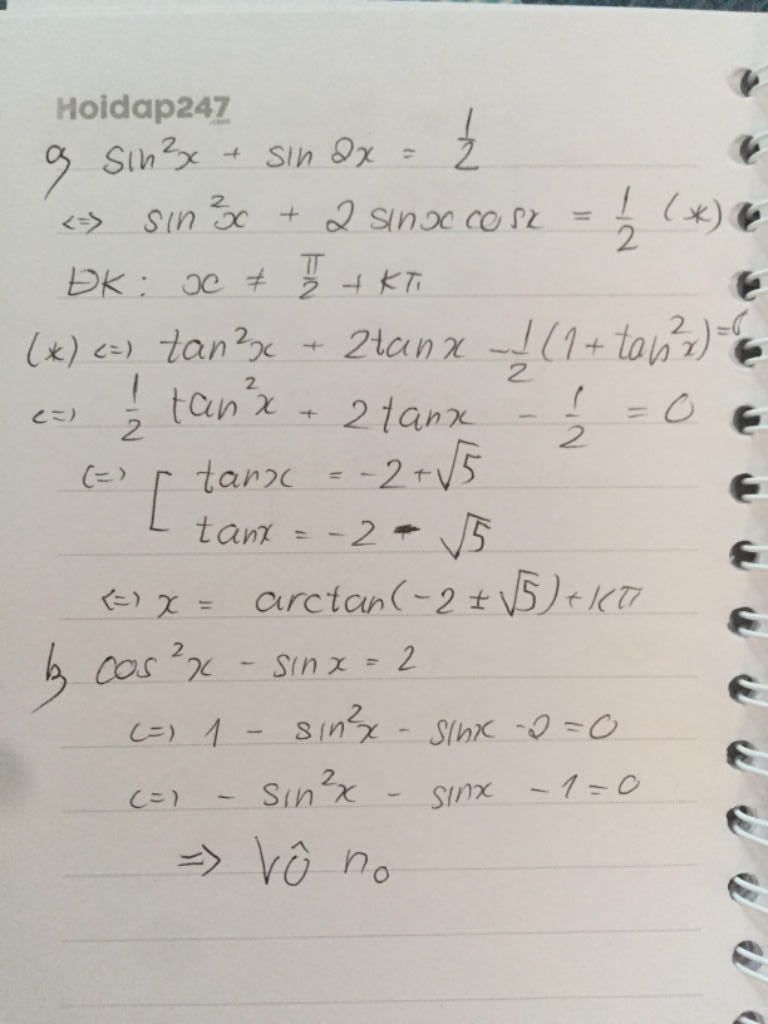 Hoidap247
.com
a, sin²x + sin 2x = 1/2
<=> sin²x + 2 sinx cosx = 1/2 (*)
ĐK: x ≠ π/2 + kπ
(*) <=> tan²x + 2tanx - 1/2(1 + tan²x) = 0
<=> 1/2 tan²x + 2tanx - 1/2 = 0
<=> [ tanx = -2 + √5
tanx = -2 - √5
<=> x = arctan(-2 ± √5) + kπ
b, cos²x - sinx = 2
<=> 1 - sin²x - sinx - 2 = 0
<=> - sin²x - sinx - 1 = 0
=> Vô no